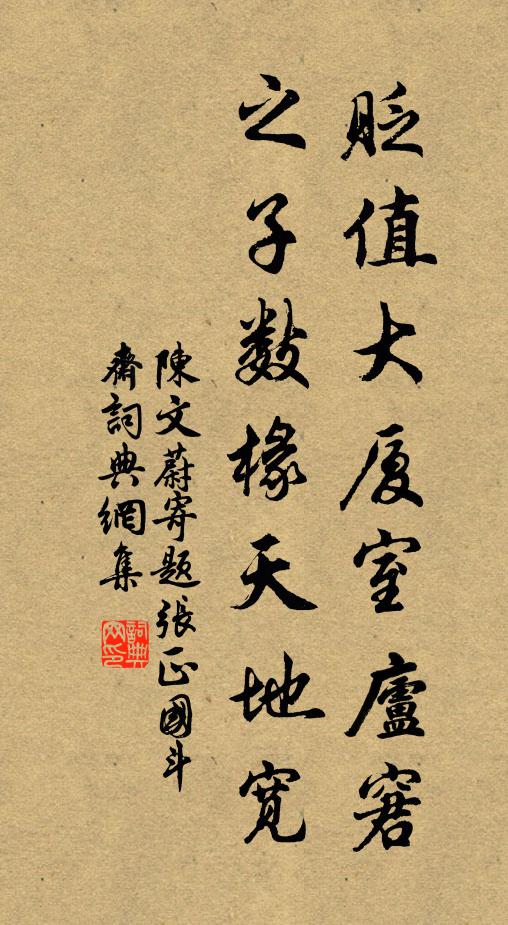 貶值大厦室廬窘
之子数椽天地寬
陳文蔚寄题張正國斗
齋詞典網集
詞典
网印